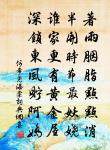 著雨胭脂點點消
半開時節最妖嬈
誰家更有黃金屋
深鎖東風貯阿嬌